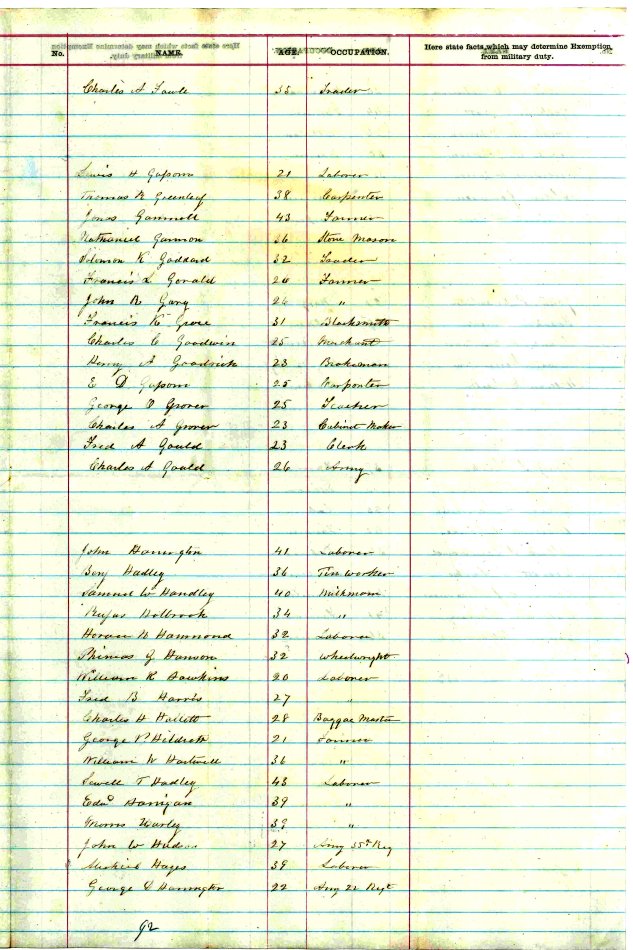 No. NAME. AGE. OCCUPATION. Here state facts which may determine Exemption from military duty.
Charles A Towle 35 Trader
Lewis H 21 Laborer
Thomas R Greenleaf 38 Carpenter
Jonas Gammell 43 Farmer
Nathaniel Gannon 36 Stone Mason
Solomon K Goddard 32 Trader
Francis L Gerald 24 Farmer
John R Gary 24 "
Francis K 31 Blacksmith
Charles C Goodwin 25 Merchant
Henry A Goodrich 23 Brakeman
E D 25 Carpenter
George D Grover 25 Teacher
Charles A Grover 23 Cabinet Maker
Fred A Gould 23 Clerk
Charles A Gould 26 Army
John Harrington 41 Laborer
Benj Hadley 36 Tin Worker
Samuel W Handley 40 Milkman
Rufus Holbrook 34 "
Horace N Hammond 32 Laborer
Phineas G Hanson 32 Wheelwright
William R Hawkins 20 Laborer
Fred B Harris 27 "
Charles H 28 Baggae Master
George P Hildreth 21 Farmer
William W Hartwell 36 "
Sewell T Hadley 43 Laborer
Edwd Harrigan 39 "
Morris 39 "
John W 27 Army 35th Reg
Hayes 39 Laborer
George D Harrington 22 Army 22 Regt
92